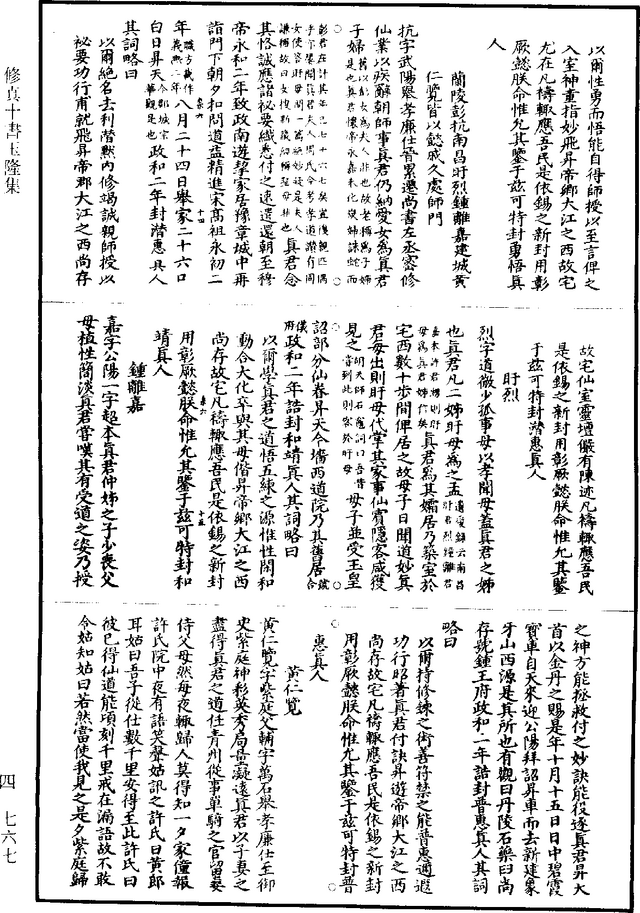 以爾性勇而悟能自得師授以至言俾之
入室神童指妙飛昇帝鄉大江之西故宅
尤在凡禱輙應吾民是依錫之新封用彰
厥懿朕命惟允其鑒于兹可特封勇悟真
人
蘭陵彭抗南昌盱烈鍾離嘉建城黄
仁覽皆以懿戚久處師門
抗字武陽舉孝廉仕晉累遷尚書左丞密修
仙業以疾辭朝師事真君仍納愛女為真君
子婦
其恪誠應諸祕要織悉付之速還還朝至穆
帝永和二年致政南遊挈家居豫章城中再
詣門下朝夕扣問道益精進宋髙祖永初二
年八月二十四日舉家二十六口
白日昇天政和二年封潛惠真人
其詞略曰
以爾絶名去利潛黙内修竭誠親師授以
祕要功行甫就飛昇帝鄉大江之西尚存
故宅仙室靈壇儼有陳迹凡禱輙應吾民
是依錫之新封用彰厥懿朕命惟允其鑒
于兹可特封潛惠真人
盱烈
烈字道微少孤事母以孝聞母蓋真君之姊
也真君凡二姊盱母爲之孟
真君爲其孀居乃築室於
宅西數十步間俾居之故母子日聞道妙真
君每出則盱母代掌其家事仙賓隱客咸獲
見之母子並受玉皇
詔部分仙眷昇天今墻西道院乃其舊居
政和二年誥封和靖真人其詞略曰
以爾學真君之道悟五練之源惟性閑和
動合大化卒與其母偕昇帝鄉大江之西
尚存故宅凡禱輙應吾民是依錫之新封
用彰厥懿朕命惟允其鑒于兹可特封和
靖真人
鍾離嘉
嘉字公陽一字超本真君仲姊之子少喪父
母植性簡淡真君嘗嘆其有受道之姿乃授
之神方能拯救付之妙訣能役逐真君昇天
首以金丹之賜是年十月十五日日中碧霞
寳車自天來迎公陽拜詔昇車而去新建象
牙山西源是其所也有觀曰丹陵石藥臼尚
存號鍾王府政和二年誥封普惠真人其詞
略曰
以爾持修鍊之術善符禁之能普惠遐邇
功行昭著真君付訣昇遊帝鄉大江之西
尚存故宅凡禱輙應吾民是依錫之新封
用彰厥懿朕命惟允其鑒于兹可特封普
惠真人
黄仁覽
黄仁覽字紫庭父輔字萬石舉孝廉仕至御
史紫庭神彩英秀局量凝遠真君以子妻之
盡得真君之道任青州從事單騎之官留妻
侍父母然每夜輙歸人莫得知一夕家僮報
許氏院中夜有語笑聲姑訊之許氏曰黄郎
耳姑曰吾子從仕數千里安得至此許氏曰
彼已得仙道能頃刻千里戒在漏語故不敢
令姑知姑曰若然當使我見之是夕紫庭歸
修真十書玉隆集
四 七六七